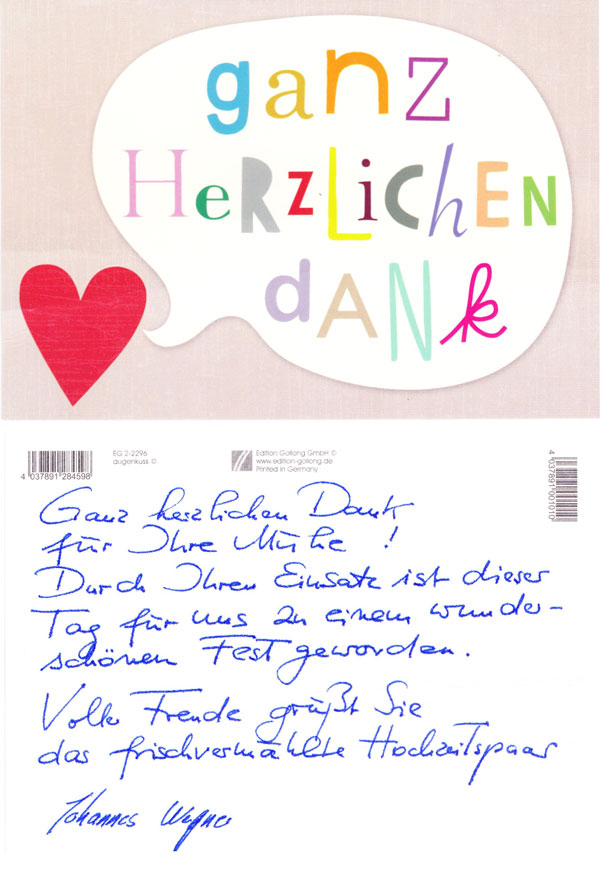 ganz
HeRZLiCHEN
dANk
4 037891 284598
EG 2-2296
augenkuss ©
Edition Gollong GmbH ©
www.edition-gollong.de
Printed in Germany
4 037891 001010
Ganz herzlichen Dank
für Ihre Mühe !
Durch Ihren Einsatz ist dieser
Tag für uns zu einem wunder-
schönen Fest geworden.
Voller Freude grüßt Sie
das frischvermählte Hochzeitspaar
Johannes Wegner